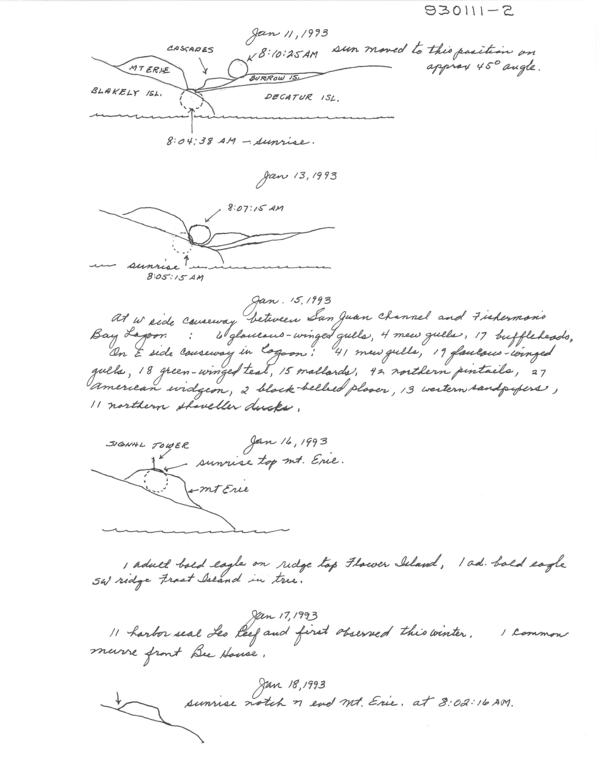 930111-2
Jan 11, 1993
CASCADES
8:10:25 AM sun moved to this position on
approx 45° angle.
MT ERIE
BURROW ISL.
BLAKELY ISL.
DECATUR ISL.
8:04:38 AM - sunrise.
Jan 13, 1993
8:07:15 AM
sunrise
8:05:15 AM
Jan. 15, 1993
At W side causeway between San Juan Channel and Fisherman's
Bay Lagoon: 6 glaucous-winged gulls, 4 mew gulls, 17 buffleheads.
On E side causeway in lagoon: 41 mew gulls, 19 glaucous-winged
gulls, 18 green-winged teal, 15 mallards, 42 northern pintails, 27
american widgeon, 2 black-bellied plover, 13 western sandpipers,
11 northern shoveller ducks.
Jan 16, 1993
SIGNAL TOWER
sunrise top mt. Erie.
mt Erie
1 adult bald eagle on ridge top Flower Island, 1 ad. bald eagle
SW ridge Frost Island in tree.
Jan 17, 1993
11 harbor seal Leo Reef and first observed this winter. 1 common
murre front Bee House.
Jan 18, 1993
sunrise notch n end Mt. Erie. at 8:02:16 AM.